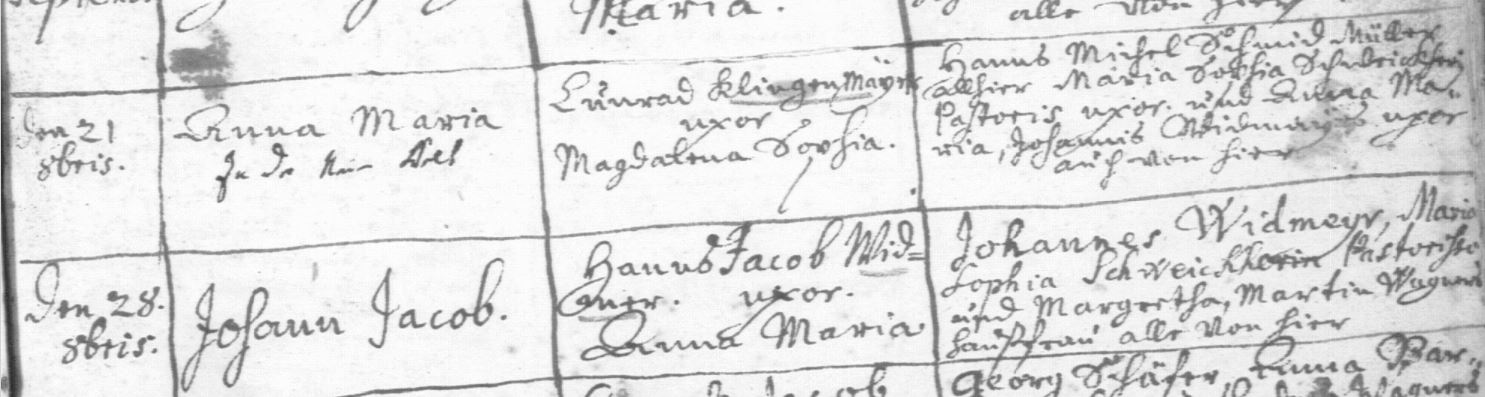 Maria.
alle von hier
den 21
8bris.
Anna Maria
In da
Cunrad Klingenmäyer
uxor
Magdalena Sophia.
Hanns Michel Schmid Müller
allhier Maria Sophia Schweickherin
Pastoris uxor. und Anna Ma-
ria, Johannis Widmayers uxor
auch von hier
den 28.
8bris.
Johann Jacob.
Hanns Jacob Wid=
uxor.
Anna Maria
Johannes Widmeyr, Maria
Sophia Schweickherin
und Margretha, Martin Wagners
haussfrau alle von hier
Georg Schäfer, Anna Bar-
Wagners